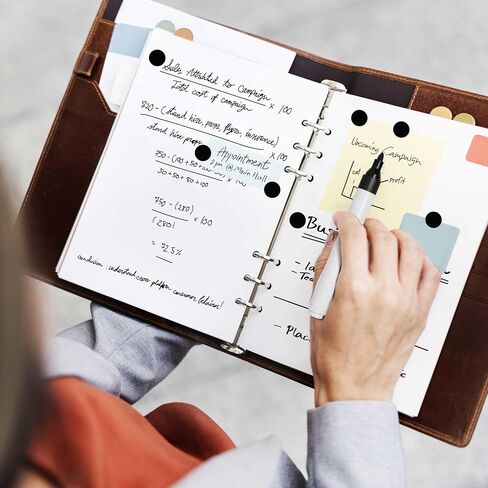 Sales Attributed to Campaign
Total cost of campaign × 100
750 - (stand hire, pens, flyers, insurance) × 100
stand hire, pens
Appointment
2 pm @ Main Hall
750 - (100 + 50 +
30 + 50 + 80 + 100 × 100
750 - (280)
(280) × 100
= 72.5%
conclusion: understand cross platform consumer behaviour!
Upcoming Campaign
cost profit
Bus
Te
Plac